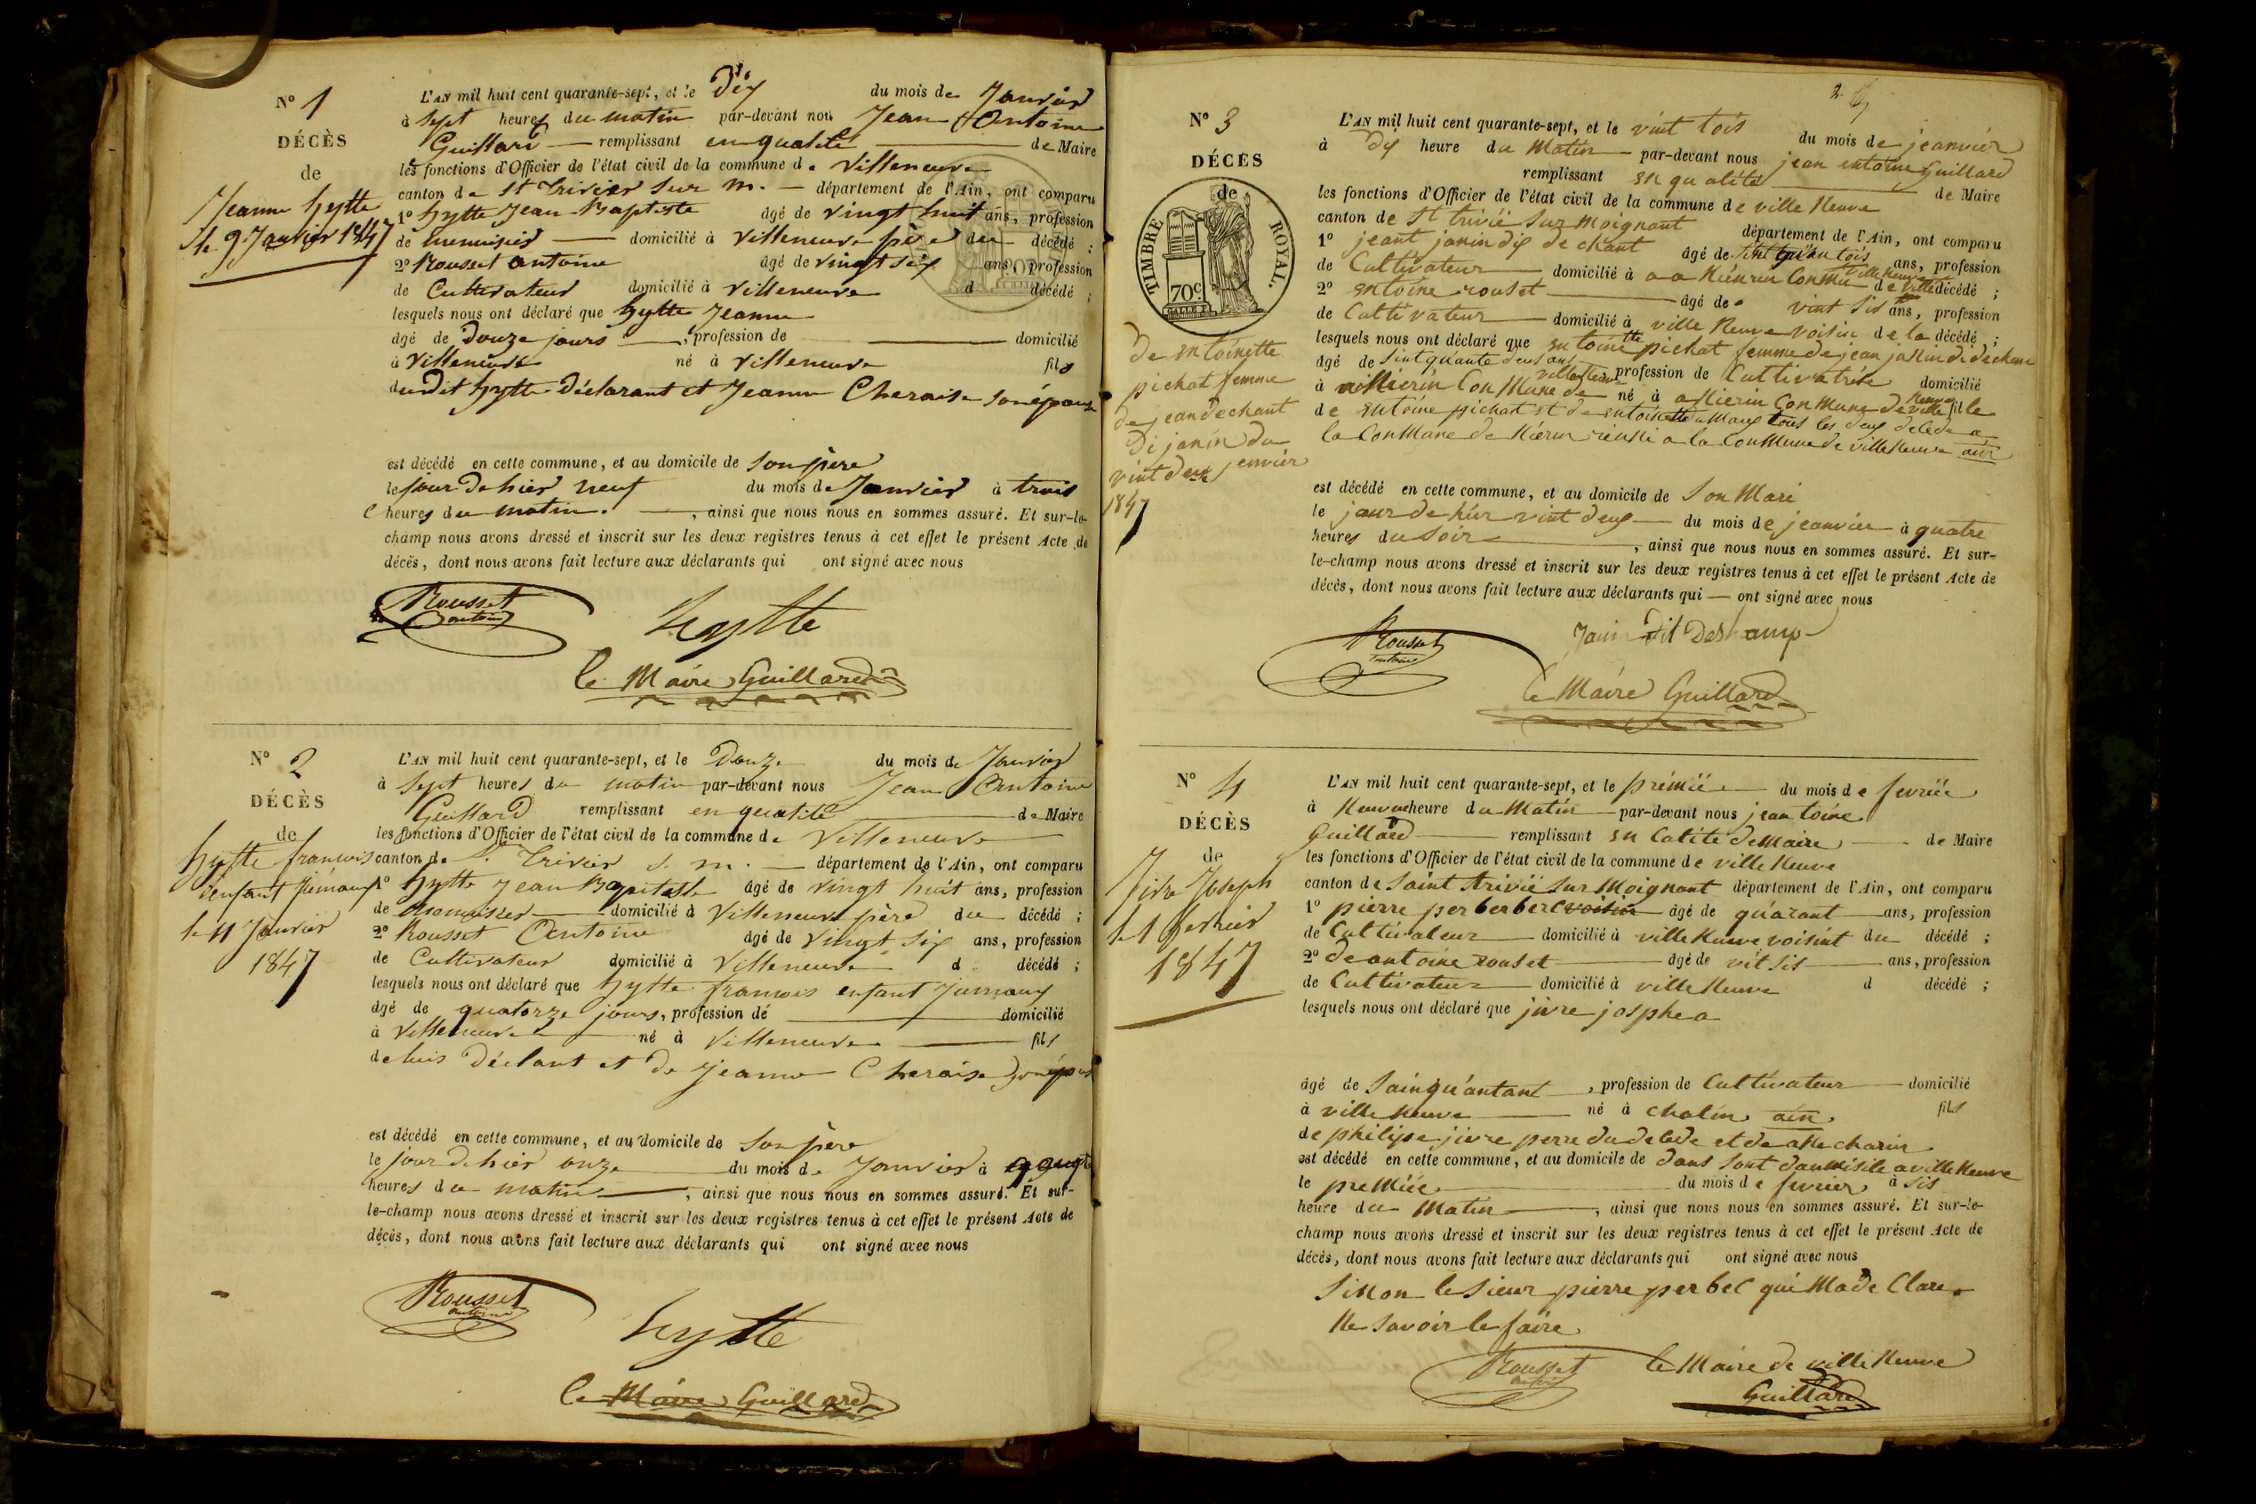 N° 1
DÉCÈS
de
Jeanne hytte
le 9 Janvier 1847
L'AN mil huit cent quarante-sept, et le Dix du mois de Janvier
à Sept heures du matin par-devant nou Jean Antoine
Guillard remplissant en qualité de Maire
les fonctions d'Officier de l'état civil de la commune de Villeneuve
canton de St Trivier sur m. département de l'Ain, ont comparu
1° hytte Jean Baptiste âgé de vingt huit ans, profession
de menuisier domicilié à Villeneuve père du décédé ;
2° Rousset Antoine âgé de vingt six ans, profession
de Cultivateur domicilié à Villeneuve d décédé ;
lesquels nous ont déclaré que hytte Jeanne
âgé de Douze jours, profession de domicilié
à Villeneuve né à Villeneuve fils
dudit hytte Déclarant et Jeanne Cheraise son épouse
est décédé en cette commune, et au domicile de Son père
le jour de hier neuf du mois de Janvier à trois
heures du matin, ainsi que nous nous en sommes assuré. Et sur-le-
champ nous avons dressé et inscrit sur les deux registres tenus à cet effet le présent Acte de
décès, dont nous avons fait lecture aux déclarants qui ont signé avec nous
Rousset
antoine
hytte
le Maire Guillard
N° 2
DÉCÈS
de
hytte francois
enfant Jumaux
le 11 Janvier
1847
L'AN mil huit cent quarante-sept, et le Douze du mois de Janvier
à Sept heures du matin par-devant nous Jean Antoine
Guillard remplissant en qualité de Maire
les fonctions d'Officier de l'état civil de la commune de Villeneuve
canton de St. Trivier s. m. département de l'Ain, ont comparu
1° hytte Jean Bapitste âgé de vingt huit ans, profession
de menuisier domicilié à Villeneuve père du décédé ;
2° Rousset Antoine âgé de vingt six ans, profession
de Cultivateur domicilié à Villeneuve d décédé ;
lesquels nous ont déclaré que hytte francois enfant Jumaux
âgé de quatorze jours, profession de domicilié
à Villeneuve né à Villeneuve fils
de luis Déclant et de Jeanne Cheraise son épous
est décédé en cette commune, et au domicile de Son père
le jour de hier onze du mois de Janvier à
heures du matin, ainsi que nous nous en sommes assuré. Et sur-
le-champ nous avons dressé et inscrit sur les deux registres tenus à cet effet le présent Acte de
décès, dont nous avons fait lecture aux déclarants qui ont signé avec nous
Rousset
antoine
hytte
le Maire Guillard
N° 3
DÉCÈS
de
TIMBRE ROYAL.
70c
de entoinette
pichat femme
de jean dechant
di janin du
vint deux jenvier
1847
L'AN mil huit cent quarante-sept, et le vint tois du mois de jeanvier
à dix heure du Matin par-devant nous jean entoine Guillard
remplissant en qualité de Maire
les fonctions d'Officier de l'état civil de la commune de ville Neuve
canton de St trivié sur Moignant département de l'Ain, ont comparu
1° jeant janin dix de chant âgé de tois ans, profession
de Cultivateur domicilié à décédé ;
2° entoine rouset âgé de vint sis ans, profession
de Cultivateur domicilié à ville Neuve voisin de la décédé ;
lesquels nous ont déclaré que entoinette pichat femme de jean janin di dechant
âgé de sintquante deus ans profession de Cultivatrise domicilié
à Conmune de né à Conmune de ville Neuve fille
de entoine pichat et de entoinette tous les deux
la Conmune de a la Conmune de ville Neuve ain
est décédé en cette commune, et au domicile de Son Mari
le jour de hier vint deux du mois de jeanvier à quatre
heures du Soir, ainsi que nous nous en sommes assuré. Et sur-
le-champ nous avons dressé et inscrit sur les deux registres tenus à cet effet le présent Acte de
décès, dont nous avons fait lecture aux déclarants qui ont signé avec nous
Rousset
antoine
Janin Dit Deshamp
le Maire Guillard
N° 4
DÉCÈS
de
Jivre Joseph
le 1 fevrier
1847
L'AN mil huit cent quarante-sept, et le prémié du mois de fevrié
à Neuve heure du Matin par-devant nous jean toine
Guillard remplissant en Calité de Maire de Maire
les fonctions d'Officier de l'état civil de la commune de ville Neuve
canton de Saint trivié sur Moignant département de l'Ain, ont comparu
1° pierre perberbere voisin âgé de quarant ans, profession
de Cultivateur domicilié à ville Neuve voisint du décédé ;
2° de antoine rouset âgé de vit sis ans, profession
de Cultivateur domicilié à ville Neuve d décédé ;
lesquels nous ont déclaré que jivre josphe a
âgé de Sainquantant, profession de Cultivateur domicilié
à ville Neuve né à chalin ain fils
de philipe jivre perre du decede et de charin
est décédé en cette commune, et au domicile de dans sont daumisile a ville Neuve
le premiée du mois de fevrier à sis
heure du Matin, ainsi que nous nous en sommes assuré. Et sur-le-
champ nous avons dressé et inscrit sur les deux registres tenus à cet effet le présent Acte de
décès, dont nous avons fait lecture aux déclarants qui ont signé avec nous
Sinon le Sieur pierre perbec qui Ma de Clare
Ne Savoir le faire
Rousset
antoine
le Maire de ville Neuve
Guillard